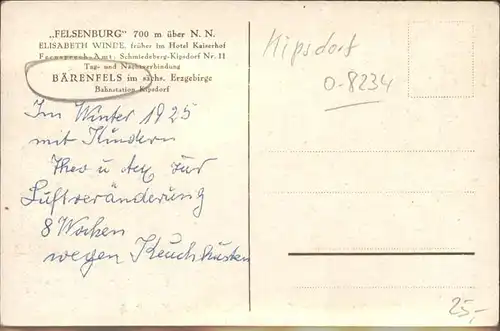 „FELSENBURG" 700 m über N. N.
ELISABETH WINDE, früher im Hotel Kaiserhof
Fernsprech-Amt: Schmiedeberg-Kipsdorf Nr. 11
Tag- und Nachtverbindung
BÄRENFELS im sächs. Erzgebirge
Bahnstation Kipsdorf
Im Winter 1925
mit Kindern
Theo u zur
Luftveränderung
8 Wochen
wegen Keuchhusten
Kipsdorf
0-8234
25,-